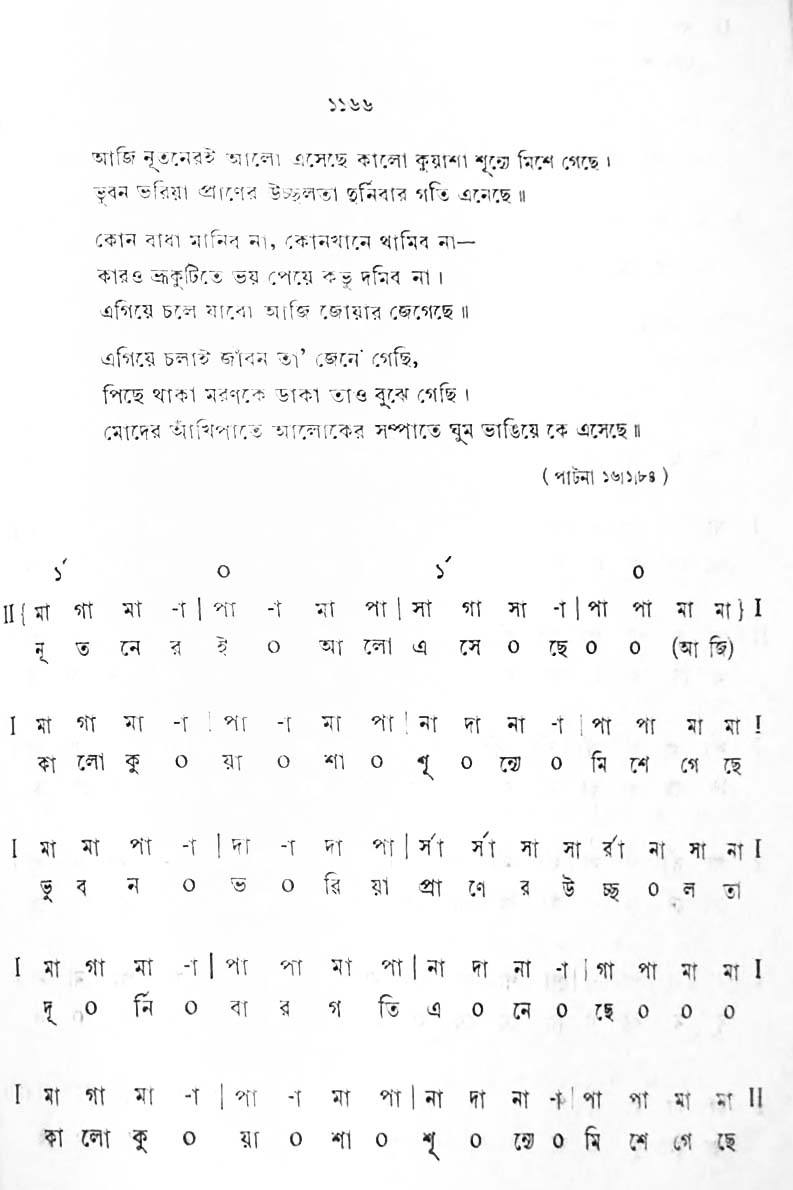 ১১৬৬
আজি নূতনেরই আলো এসেছে কালো কুয়াশা শূন্যে মিশে গেছে।
ভুবন ভরিয়া প্রাণের উচ্ছলতা দুর্নিবার গতি এনেছে॥
কোন বাধা মানিব না, কোনখানে থামিব না—
কারও ভ্রূকুটিতে ভয় পেয়ে কভু দমিব না।
এগিয়ে চলে যাবো আজি জোয়ার জেগেছে॥
এগিয়ে চলাই জীবন তা' জেনে গেছি,
পিছে থাকা মরণকে ডাকা তাও বুঝে গেছি।
মোদের আঁখিপাতে আলোকের সম্পাতে ঘুম ভাঙিয়ে কে এসেছে॥
( পাটনা ১৬।১।৮৪ )
১´ ০ ১´ ০
II { মা গা মা -া | পা -া মা পা | সা গা সা -া | পা পা মা মা } I
নূ ত নে র ই ০ আ লো এ সে ০ ছে ০ ০ (আ জি)
I মা গা মা -া | পা -া মা পা | না দা না -া | পা পা মা মা I
কা লো কু ০ য়া ০ শা ০ শূ ০ ন্যে ০ মি শে গে ছে
I মা মা পা -া | দা -া দা পা | র্সা র্সা সা সা র্রা না সা না I
ভু ব ন ০ ভ ০ রি য়া প্রা ণে র উ চ্ছ ০ ল তা
I মা গা মা -া | পা পা মা পা | না দা না -া | গা পা মা মা I
দূ ০ র্নি ০ বা র গ তি এ ০ নে ০ ছে ০ ০ ০
I মা গা মা -া | পা -া মা পা | না দা না -া | পা পা মা মা II
কা লো কু ০ য়া ০ শা ০ শূ ০ ন্যে ০ মি শে গে ছে